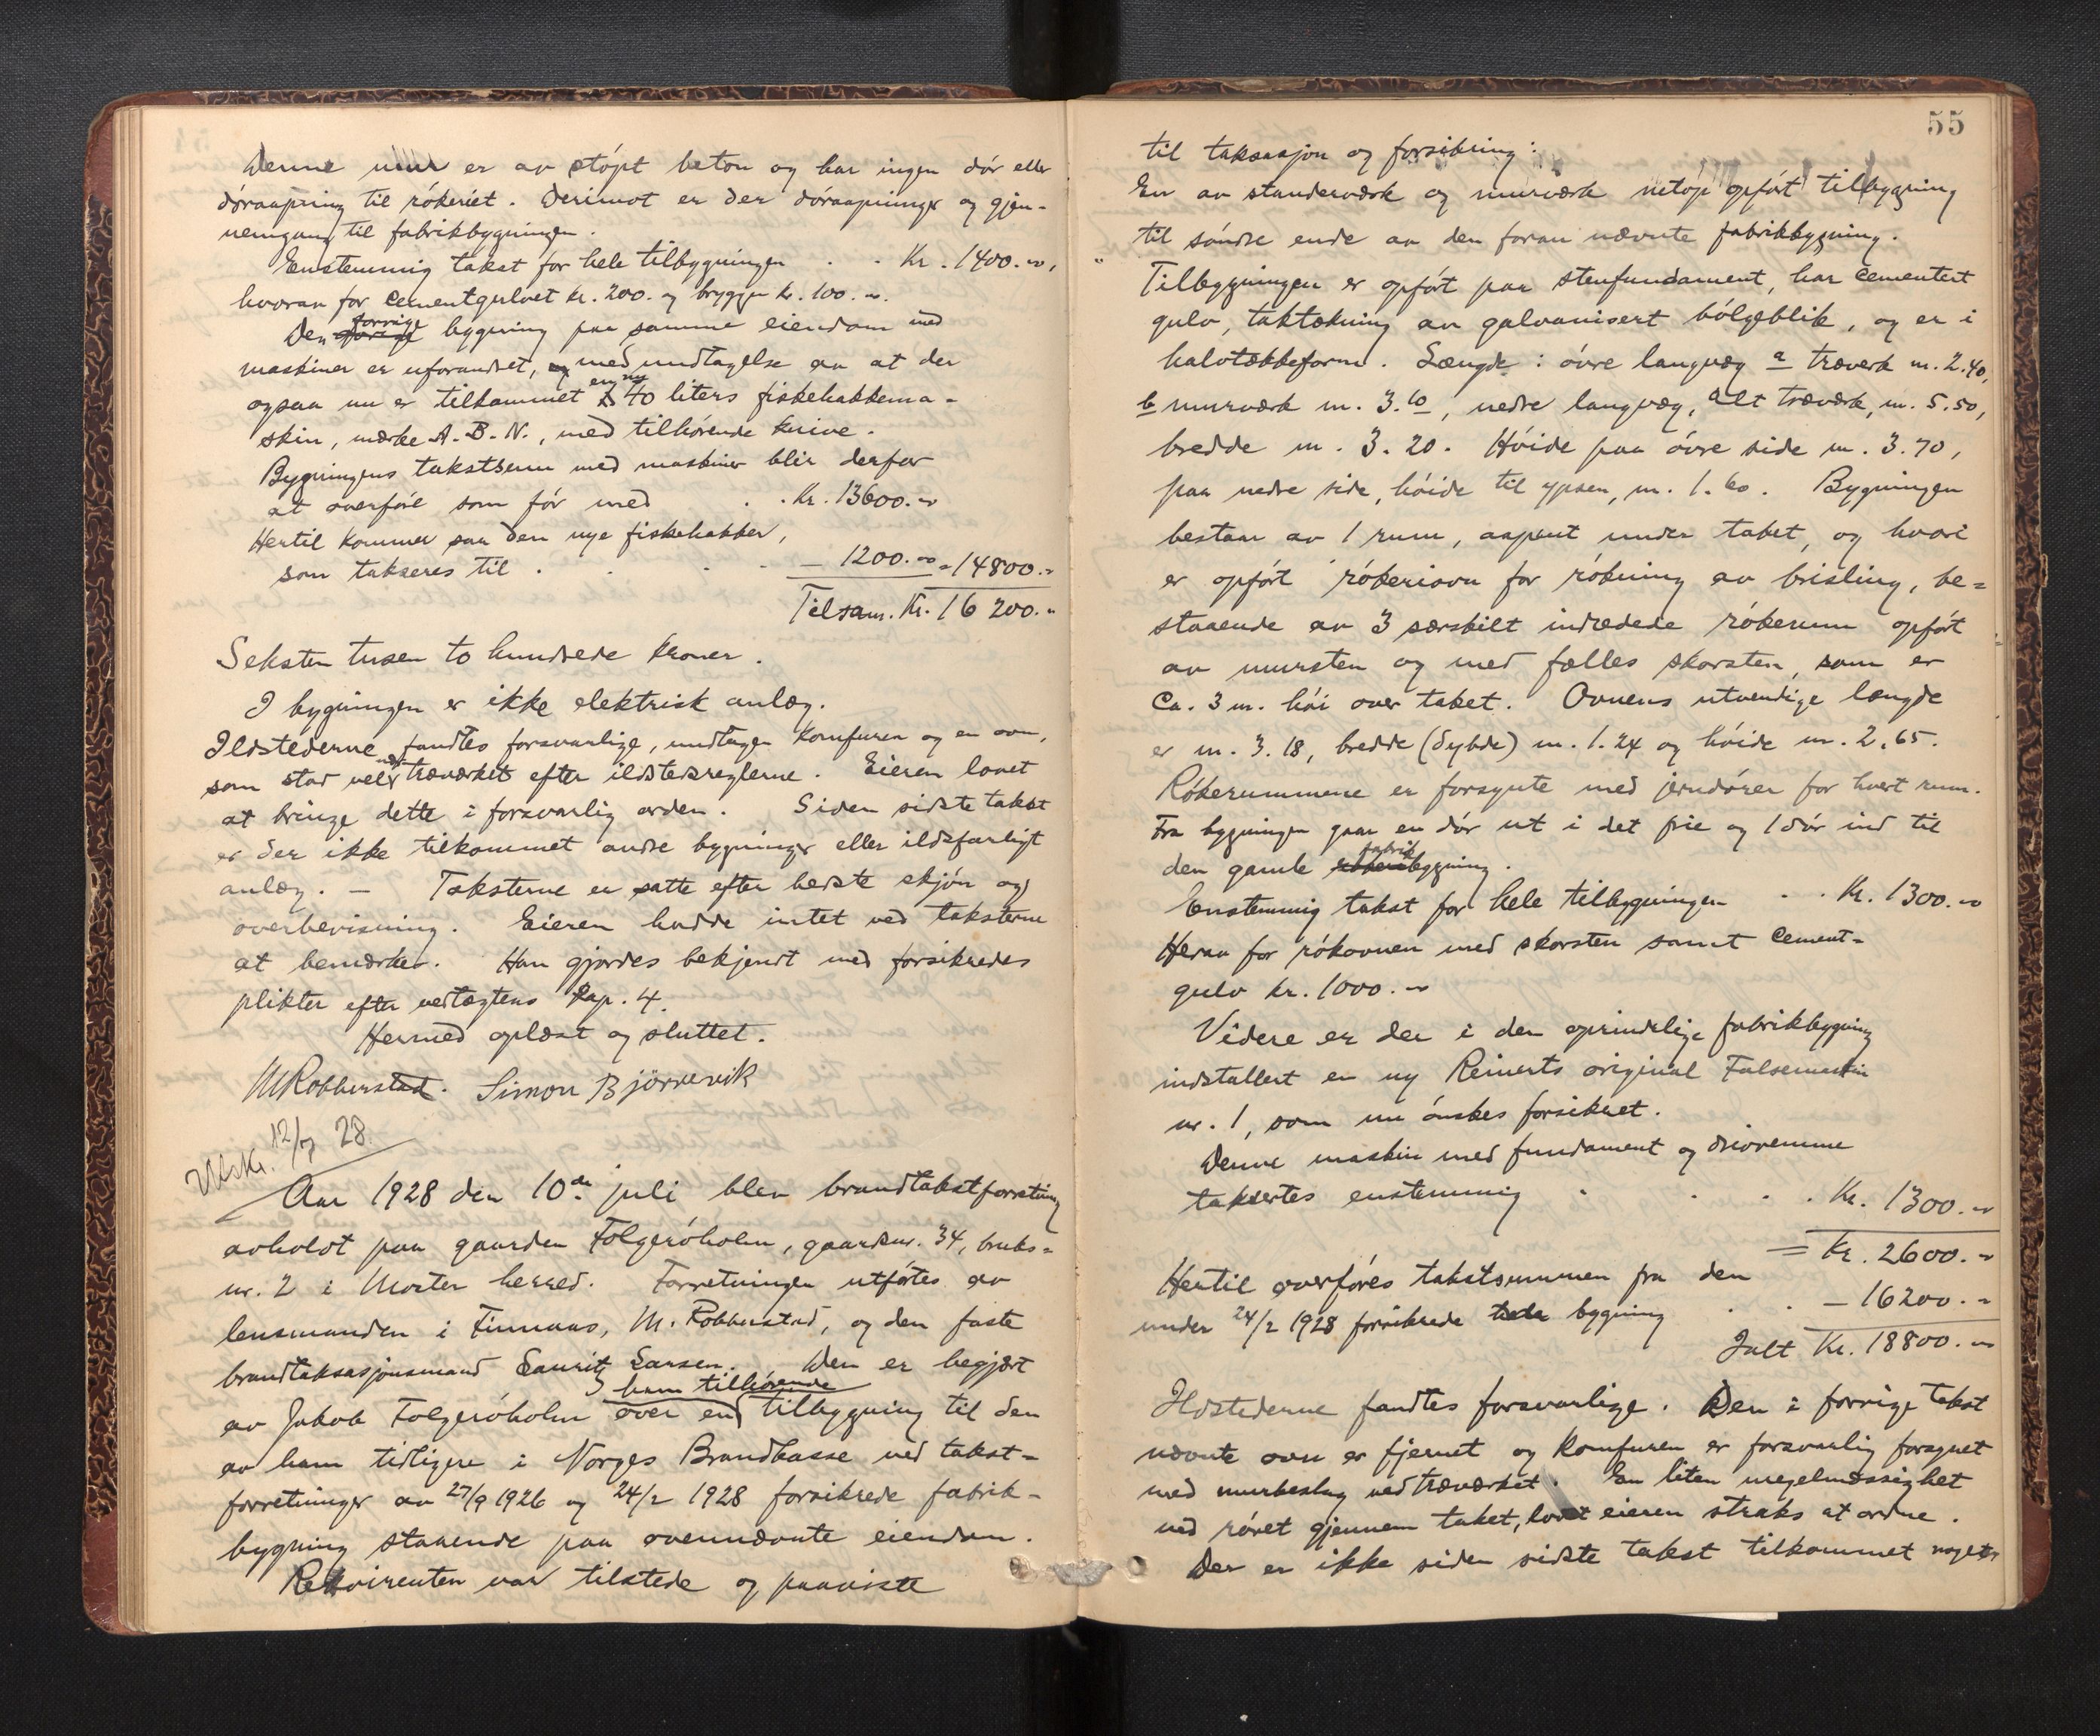 Denne mur er av støpt beton og har ingen dør eller
døraapning til røkeriet. Derimot er der døraapninger og gjen-
nemgang til fabrikbygningen.
Enstemmig takst for hele tilbygningen . . Kr. 1400.-,
hvorav for cementgulvet kr. 200.- og bryggen kr. 100.-.
Den forrige bygning paa samme eiendom med
maskiner er uforandret, med undtagelse av at der
ogsaa nu er tilkommet en ny 40 liters fiskehakkema-
skin, mærke A.B.N., med tilhørende knive.
Bygningens takstsum med maskiner blir derfor
at overføre som før med . . Kr. 13600.-
Hertil kommer saa den nye fiskehakker,
som takseres til . . . . - 1200.- = 14800.-
Tilsam. Kr. 16200.-
Seksten tusen to hundrede kroner.
I bygningen er ikke elektrisk anlæg.
Ildstederne fandtes forsvarlige, undtagen komfuren og en ovn,
som stod ved træværket efter ildstedsreglerne. Eieren lovet
at bringe dette i forsvarlig orden. Siden sidste takst
er der ikke tilkommet andre bygninger eller ildsfarligt
anlæg. — Taksterne er satte efter bedste skjøn og
overbevisning. Eieren hadde intet ved taksterne
at bemærke. Han gjordes bekjendt med forsikredes
plikter efter vedtægtens kap. 4.
Hermed oplæst og sluttet.
M Robberstad. Simon Bjørnevik
Utskr. 12/7 28.
Aar 1928 den 10de juli blev brandtakstforretning
avholdt paa gaarden Folgerøholm, gaardsnr. 34, bruks-
nr. 2 i Moster herred. Forretningen utførtes av
lensmanden i Finnaas, M. Robberstad, og den faste
brandtaksasjonsmand Lauritz Larsen. Den er begjært
av Jakob Folgerøholm over en ham tilhørende tilbygning til den
av ham tidligere i Norges Brandkasse ved takst-
forretninger av 27/9 1926 og 24/2 1928 forsikrede fabrik-
bygning staaende paa ovennævnte eiendom.
Rekvirenten var tilstede og paaviste
55
til taksasjon og forsikring:
En av standerværk og murværk netop opført tilbygning
til søndre ende av den foran nævnte fabrikbygning.
Tilbygningen er opført paa stenfundament, har cementert
gulv, taktækning av galvanisert bølgeblik, og er i
halvtækkeform. Længde: øvre langvæg a træverk m. 2.40,
b murværk m. 3.10, nedre langvæg, alt træværk, m. 5.50,
bredde m. 3.20. Høide paa øvre side m. 3.70,
paa nedre side, høide til ypsen, m. 1.60. Bygningen
bestaar av 1 rum, aapent under taket, og hvori
er opført røkeriovn for røkning av brisling, be-
staaende av 3 særskilt indredede røkerum opført
av mursten og med fælles skorsten, som er
ca. 3 m. høi over taket. Ovnens utvendige længde
er m. 3.18, bredde (dybde) m. 1.24 og høide m. 2,65.
Røkerummene er forsynte med jerndører for hvert rum.
Fra bygningen gaar en dør ut i det frie og 1 dør ind til
den gamle fabrikbygning.
Enstemmig takst for hele tilbygningen . . Kr. 1300.-
Herav for røkovnen med skorsten samt cement-
gulv kr. 1000.-
Videre er der i den oprindelige fabrikbygning
indstallert en ny Reinerts original Falsemaskin
nr. 1, som nu ønskes forsikret.
Denne maskin med fundament og drivremme
taksertes enstemmig . . . . Kr. 1300.-
= Kr. 2600.-
Hertil overføres takstsummen fra den
under 24/2 1928 forsikrede bygning . . - 16200.-
Ialt Kr. 18800.-
Ildstederne fandtes forsvarlige. Den i forrige takst
nævnte ovn er fjernet og komfuren er forsvarlig forsynet
med murbeslag ved træværket. En liten uregelmæssighet
ved røret gjennem taket, lovet eieren straks at ordne.
Der er ikke siden sidste takst tilkommet noget